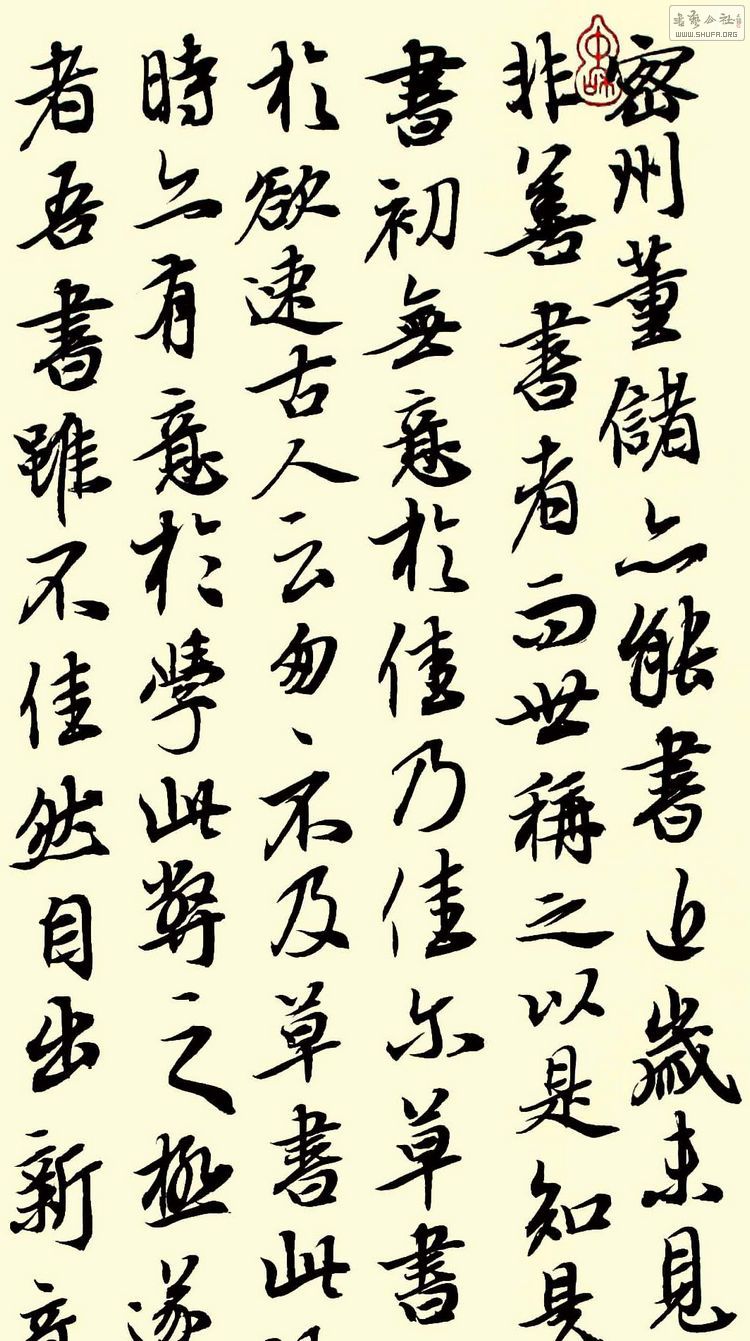 密州董儲亦能書近歲未見
非善書者而世稱之以是知是
書初無意於佳乃佳尔草書
於欲速古人云匆匆不及草書此
時亦有意於學此弊之極遂
者吾書雖不佳然自出新意
書藝公社
WWW.SHUFA.ORG